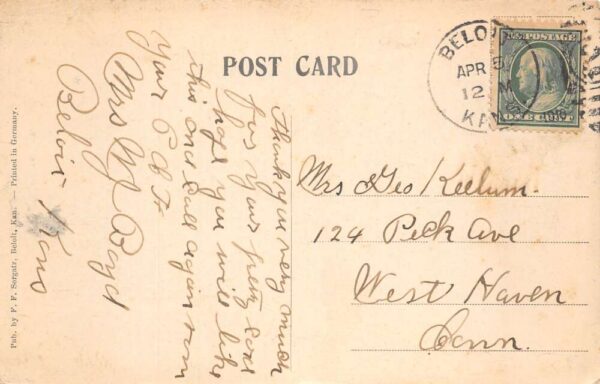 POST CARD
BELOIT
APR 5
12 M
KAN
U.S. POSTAGE
ONE CENT
Thank you very much
for your pretty card
hope you will like
this one call again soon
your P.C.F.
Mrs W J Boyd
Beloit Kans
Mrs Geo Kellum.
124 Peck Ave
West Haven
Conn.
Pub. by F. F. Sergatz, Beloit, Kan. — Printed in Germany.